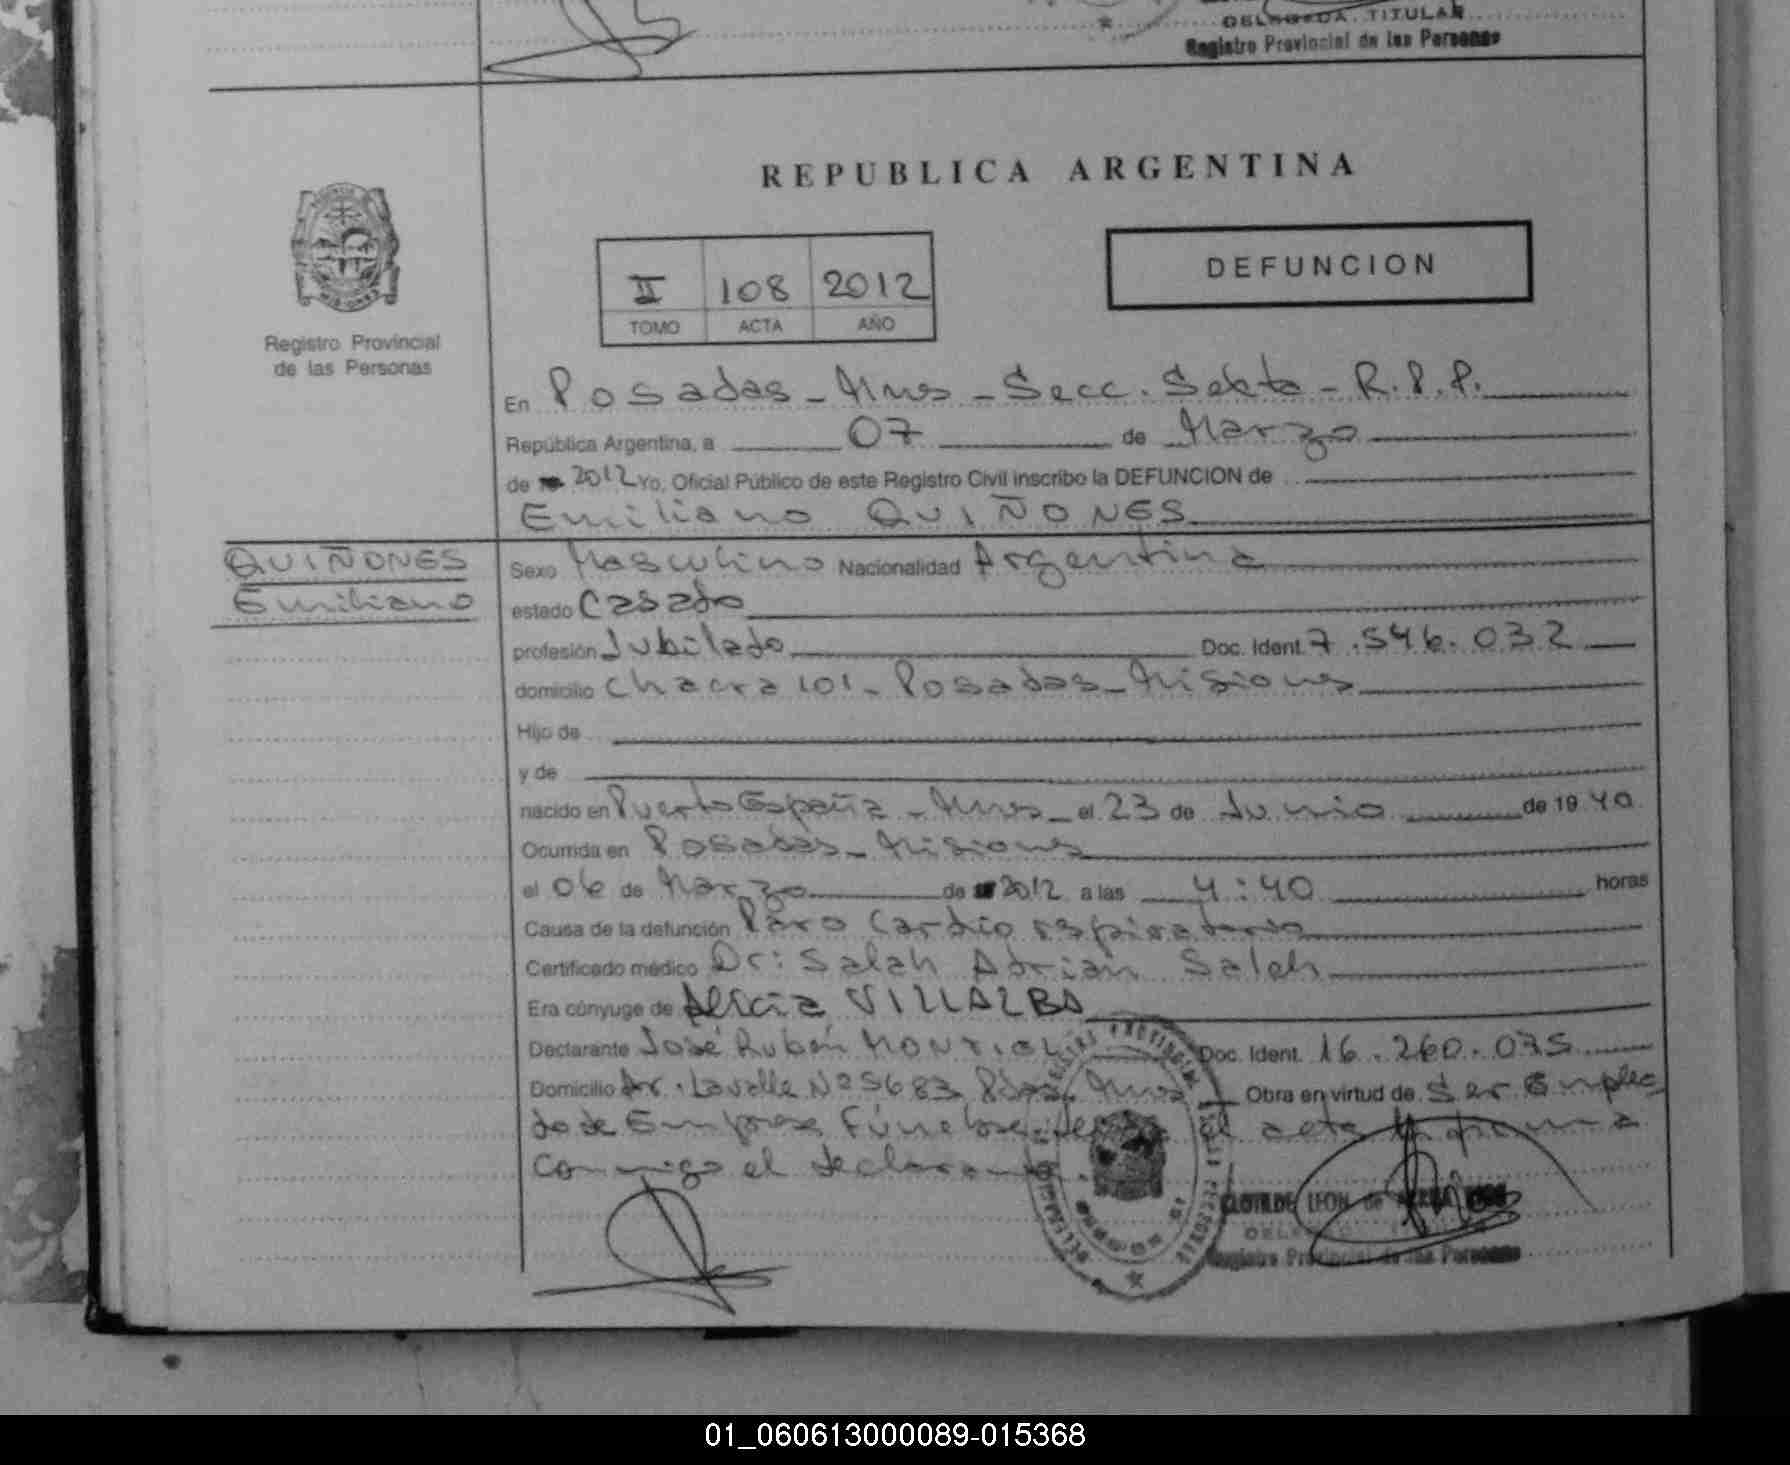 DELEGADA TITULAR
Registro Provincial de las Personas
REPUBLICA ARGENTINA
II 108 2012
TOMO ACTA AÑO
DEFUNCION
Registro Provincial
de las Personas
En Posadas - Mnes - Secc. Sexta - R.P.P.
República Argentina, a 07 de Marzo
de 2012 Yo, Oficial Público de este Registro Civil inscribo la DEFUNCION de
Emiliano QUIÑONES
QUIÑONES
Emiliano
Sexo Masculino Nacionalidad Argentina
estado Casado
profesión Jubilado Doc. Ident. 7.546.032
domicilio Chacra 101 - Posadas - Misiones
Hijo de
y de
nacido en Puerto España - Mnes - el 23 de Junio de 1940
Ocurrida en Posadas - Misiones
el 06 de Marzo de 2012 a las 4:40 horas
Causa de la defunción Paro Cardio respiratorio
Certificado médico Dr: Salah Adrian Saleh
Era cónyuge de Alicia VILLALBA
Declarante José Rubén Doc. Ident. 16.260.075
Domicilio Av. Lavalle Nº 5683 Pdas. Mnes Obra en virtud de Ser Emplea
do de Empresa Fúnebre el acta la firma
conmigo el declarante
CLOTILDE LEON de
Registro Provincial de las Personas
01_060613000089-015368